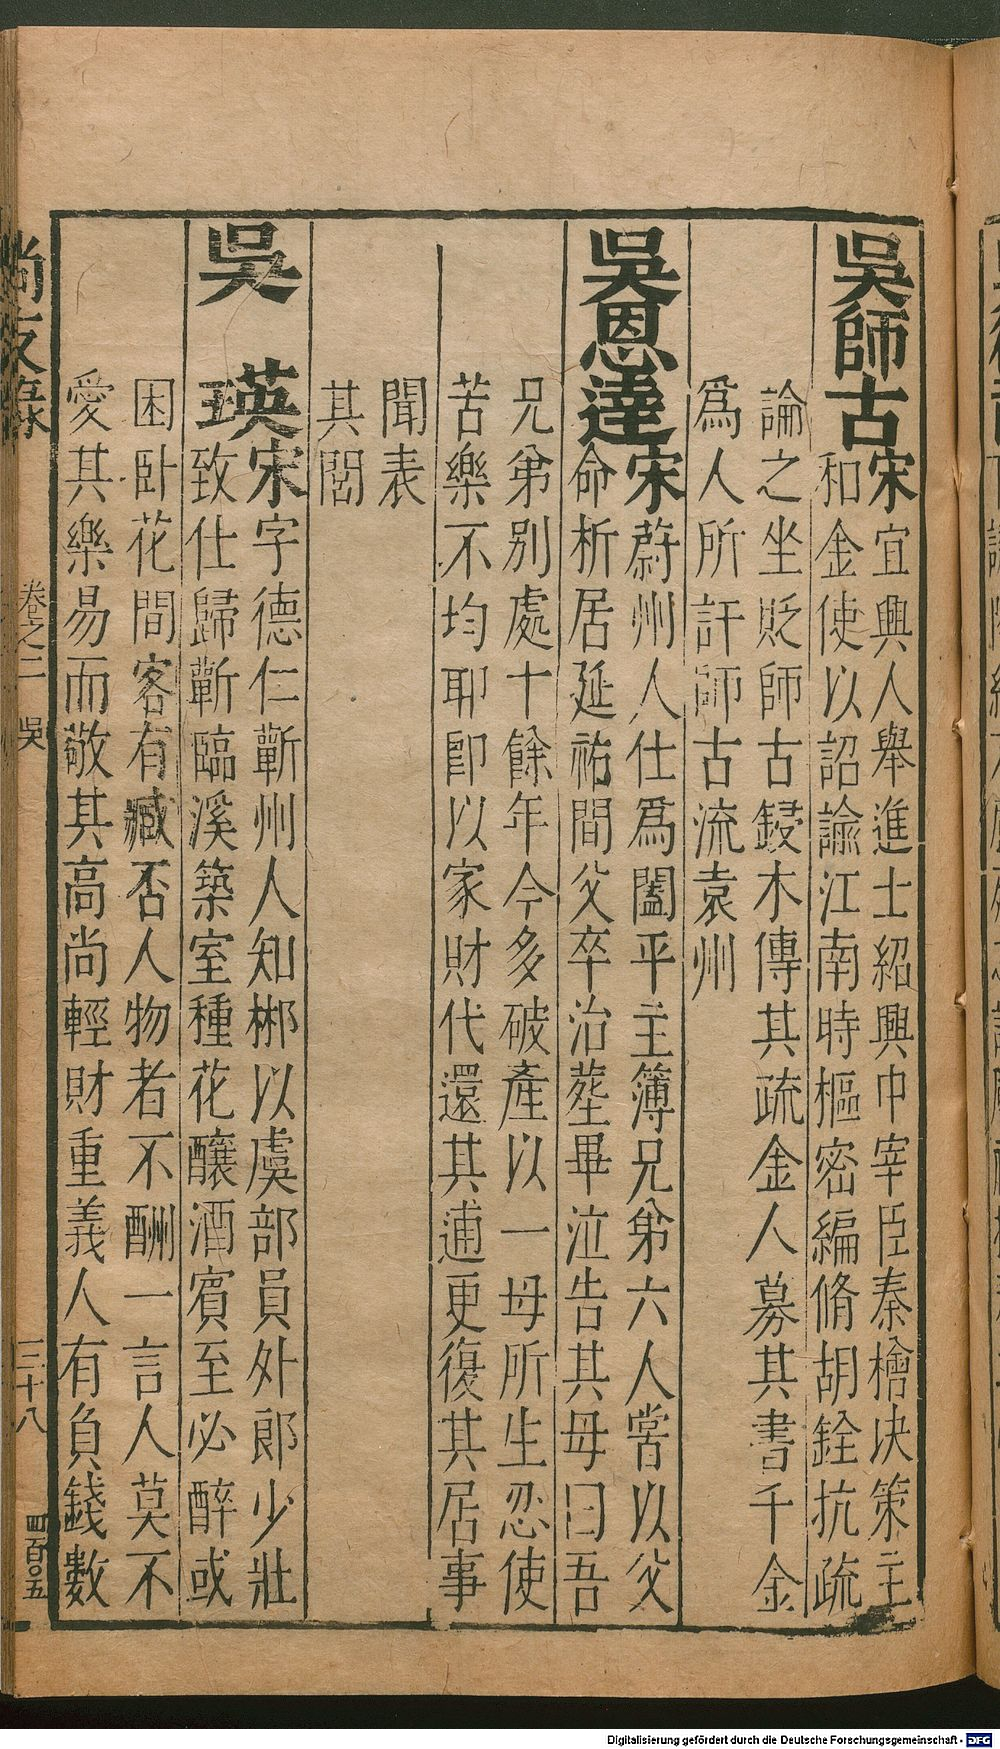 吳師古宋宜興人舉進士紹興中宰臣秦檜决策主
和金使以詔諭江南時樞密編脩胡銓抗疏
論之坐貶師古鋟木傳其疏金人募其書千金
爲人所訐師古流袁州
吳恩達宋蔚州人仕爲闔平主簿兄弟六人嘗以父
命析居延祐間父卒治塟畢泣告其母曰吾
兄弟別處十餘年今多破產以一母所生忍使
苦樂不均耶即以家財代還其逋更復其居事
聞表
其閭
吳 瑛宋字德仁蘄州人知郴以虞部員外郎少壯
致仕歸蘄臨溪築室種花釀酒賓至必醉或
困卧花間客有臧否人物者不酬一言人莫不
愛其樂易而敬其高尚輕財重義人有負錢數
尚友錄 卷之二 吳 三十八 四百〇五
Digitalisierung gefördert durch die Deutsche Forschungsgemeinschaft - DFG